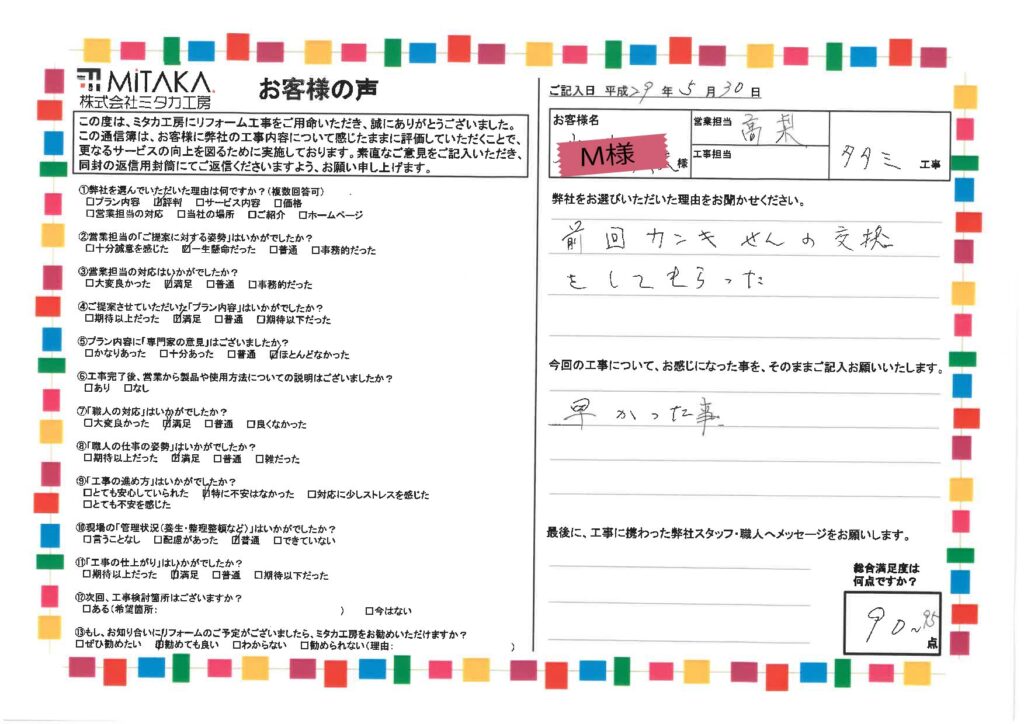 MiTAKA
株式会社ミタカ工房
お客様の声
この度は、ミタカ工房にリフォーム工事をご用命いただき、誠にありがとうございました。
この通信簿は、お客様に弊社の工事内容について感じたままに評価していただくことで、
更なるサービスの向上を図るために実施しております。素直なご意見をご記入いただき、
同封の返信用封筒にてご返信くださいますよう、お願い申し上げます。
①弊社を選んでいただいた理由は何ですか?(複数回答可)
□プラン内容 ☑評判 □サービス内容 □価格
□営業担当の対応 □当社の場所 □ご紹介 □ホームページ
②営業担当の「ご提案に対する姿勢」はいかがでしたか?
□十分誠意を感じた ☑一生懸命だった □普通 □事務的だった
③営業担当の対応はいかがでしたか?
□大変良かった ☑満足 □普通 □事務的だった
④ご提案させていただいた「プラン内容」はいかがでしたか?
□期待以上だった ☑満足 □普通 □期待以下だった
⑤プラン内容に「専門家の意見」はございましたか?
□かなりあった □十分あった □普通 ☑ほとんどなかった
⑥工事完了後、営業から製品や使用方法についての説明はございましたか?
□あり □なし
⑦「職人の対応」はいかがでしたか?
□大変良かった ☑満足 □普通 □良くなかった
⑧「職人の仕事の姿勢」はいかがでしたか?
□期待以上だった ☑満足 □普通 □雑だった
⑨「工事の進め方」はいかがでしたか?
□とても安心していられた ☑特に不安はなかった □対応に少しストレスを感じた
□とても不安を感じた
⑩現場の「管理状況(養生・整理整頓など)」はいかがでしたか?
□言うことなし □配慮があった ☑普通 □できていない
⑪「工事の仕上がり」はいかがでしたか?
□期待以上だった ☑満足 □普通 □期待以下だった
⑫次回、工事検討箇所はございますか?
□ある(希望箇所: ) □今はない
⑬もし、お知り合いにリフォームのご予定がございましたら、ミタカ工房をお勧めいただけますか?
□ぜひ勧めたい ☑勧めても良い □わからない □勧められない(理由: )
ご記入日 平成29年5月30日
お客様名
M様
様
営業担当 高梨
工事担当
タタミ 工事
弊社をお選びいただいた理由をお聞かせください。
前回カンキせんの交換
をしてもらった
今回の工事について、お感じになった事を、そのままご記入お願いいたします。
早かった事
最後に、工事に携わった弊社スタッフ・職人へメッセージをお願いします。
総合満足度は
何点ですか?
90~95
点